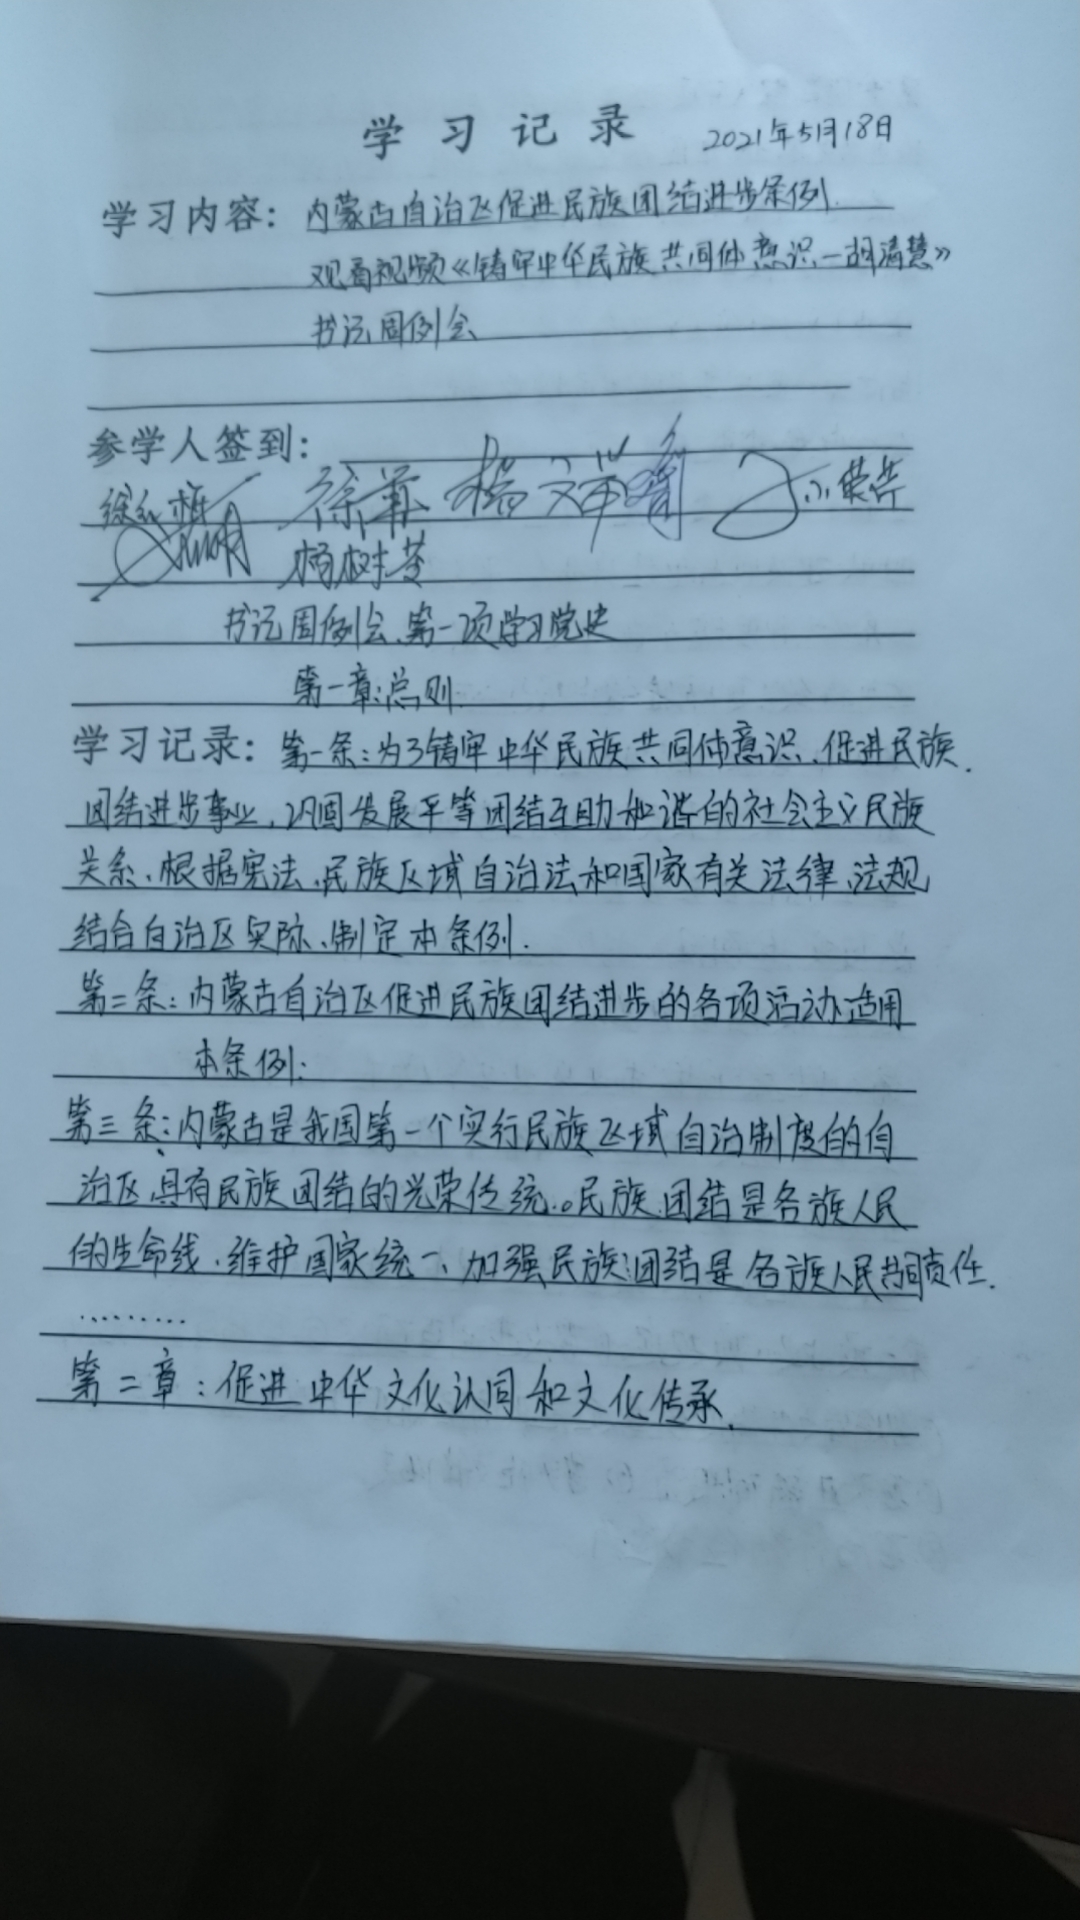 学习记录 2021年5月18日
学习内容: 内蒙古自治区促进民族团结进步条例.
观看视频《铸牢中华民族共同体意识—胡清慧》
书记周例会
参学人签到:
徐华 杨文祥
杨树芳
书记周例会、第一项学习党史
第一章:总则.
学习记录: 第一条:为了铸牢中华民族共同体意识、促进民族.
团结进步事业,巩固发展平等团结互助和谐的社会主义民族
关系、根据宪法、民族区域自治法和国家有关法律、法规
结合自治区实际、制定本条例.
第二条:内蒙古自治区促进民族团结进步的各项活动适用
本条例:
第三条:内蒙古是我国第一个实行民族区域自治制度的自
治区、具有民族团结的光荣传统.。民族团结是各族人民
的生命线、维护国家统一、加强民族团结是各族人民共同责任.
.........
第二章:促进中华文化认同和文化传承.